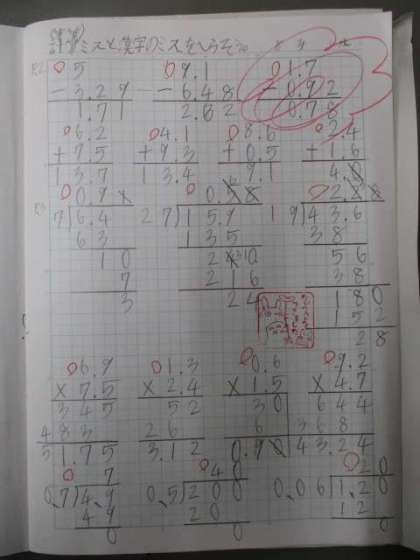 計算ミスと漢字のミスをへらそう。
5 9.1 1.7
-3.29 -6.48 -0.92
1.71 2.62 0.78
6.2 4.1 8.6 2.4
+7.5 +9.3 +0.5 +1.6
13.7 13.4 9.1 4.0
0.9 0.58 2.28
7)6.4 27)15.9 19)43.6
63 135 38
10 240 56
7 216 38
3 24 180
152
28
6.9 1.3 0.6 9.2
×7.5 ×2.4 ×1.5 ×4.7
345 52 30 644
483 26 6 368
51.75 3.12 0.90 43.24
7 40 20
0.7)4.9 0.5)200 0.06)1.20
49 20 12
0 0 0